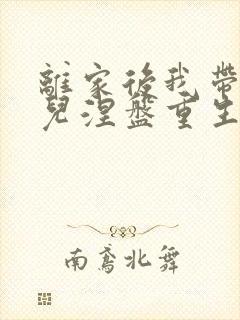 離家後我帶
兒涅盤重生
南鳶北舞